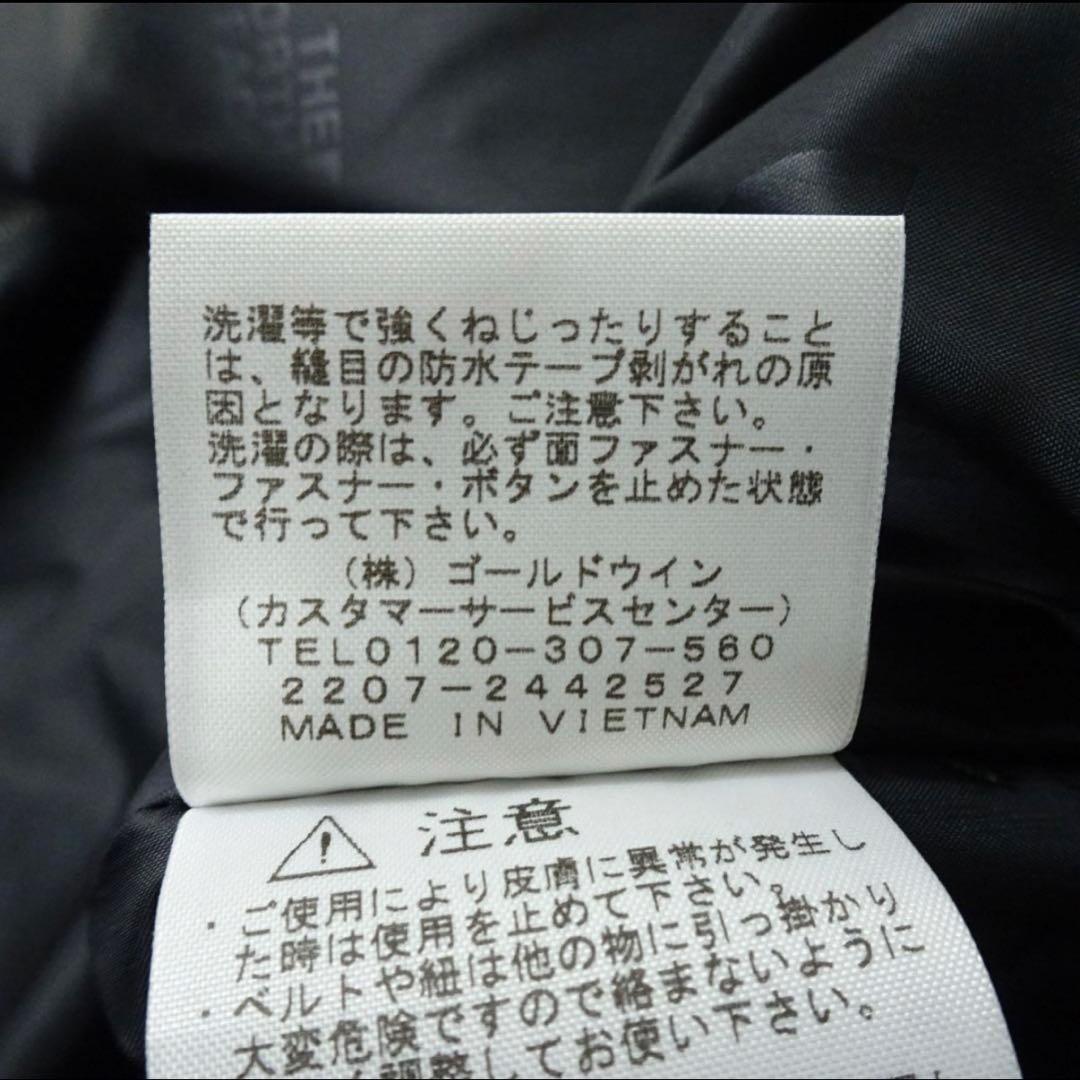 THE
洗濯等で強くねじったりすること
は、縫目の防水テープ剥がれの原
因となります。ご注意下さい。
洗濯の際は、必ず面ファスナー・
ファスナー・ボタンを止めた状態
で行って下さい。
(株)ゴールドウイン
(カスタマーサービスセンター)
TEL0120-307-560
2207-2442527
MADE IN VIETNAM
注意
・ご使用により皮膚に異常が発生し
た時は使用を止めて下さい。
・ベルトや紐は他の物に引っ掛かり
大変危険ですので絡まないように
調整してお使い下さい。